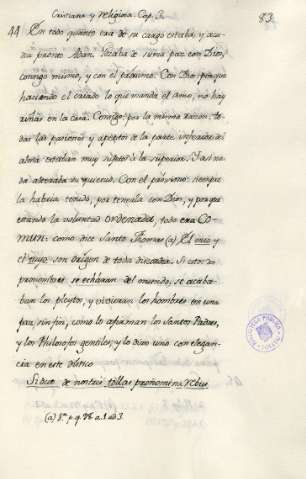 Cristiana y religiosa. Cap. 3.
83.
44 En todo quanto era de su cargo estaba, y acu-
dia presto Adan. Vestiale de suma paz con Dios,
consigo mismo, y con el proximo. Con Dios: porque
haciendo el criado lo que manda el amo, no hay
riñas en la casa. Consigo: por la misma razon: to-
das las pasiones y apetitos de la parte inferior del
alma estaban muy sujetos à la superior. Y asi na-
da alteraba su quietud. Con el proximo: siempre
la habria tenido, por tenerla con Dios, y porque
estando la voluntad ordenada, todo era Co-
mun: como dice Santo Thomas (a) El mio y
el tuyo son origen de toda discordia. Si estos dos
pronombres se echáran del mundo, se acaba-
ban los pleytos, y vivieran los hombres en una
paz sin fin, como lo afirman los Santos Padres,
y los Philosofos gentiles, y lo dixo uno con elegan-
cia en este distico
Si duo de nostris tollas pronomina rebus
(a) 1ª. p. q. 98 a. 1 ad 3.